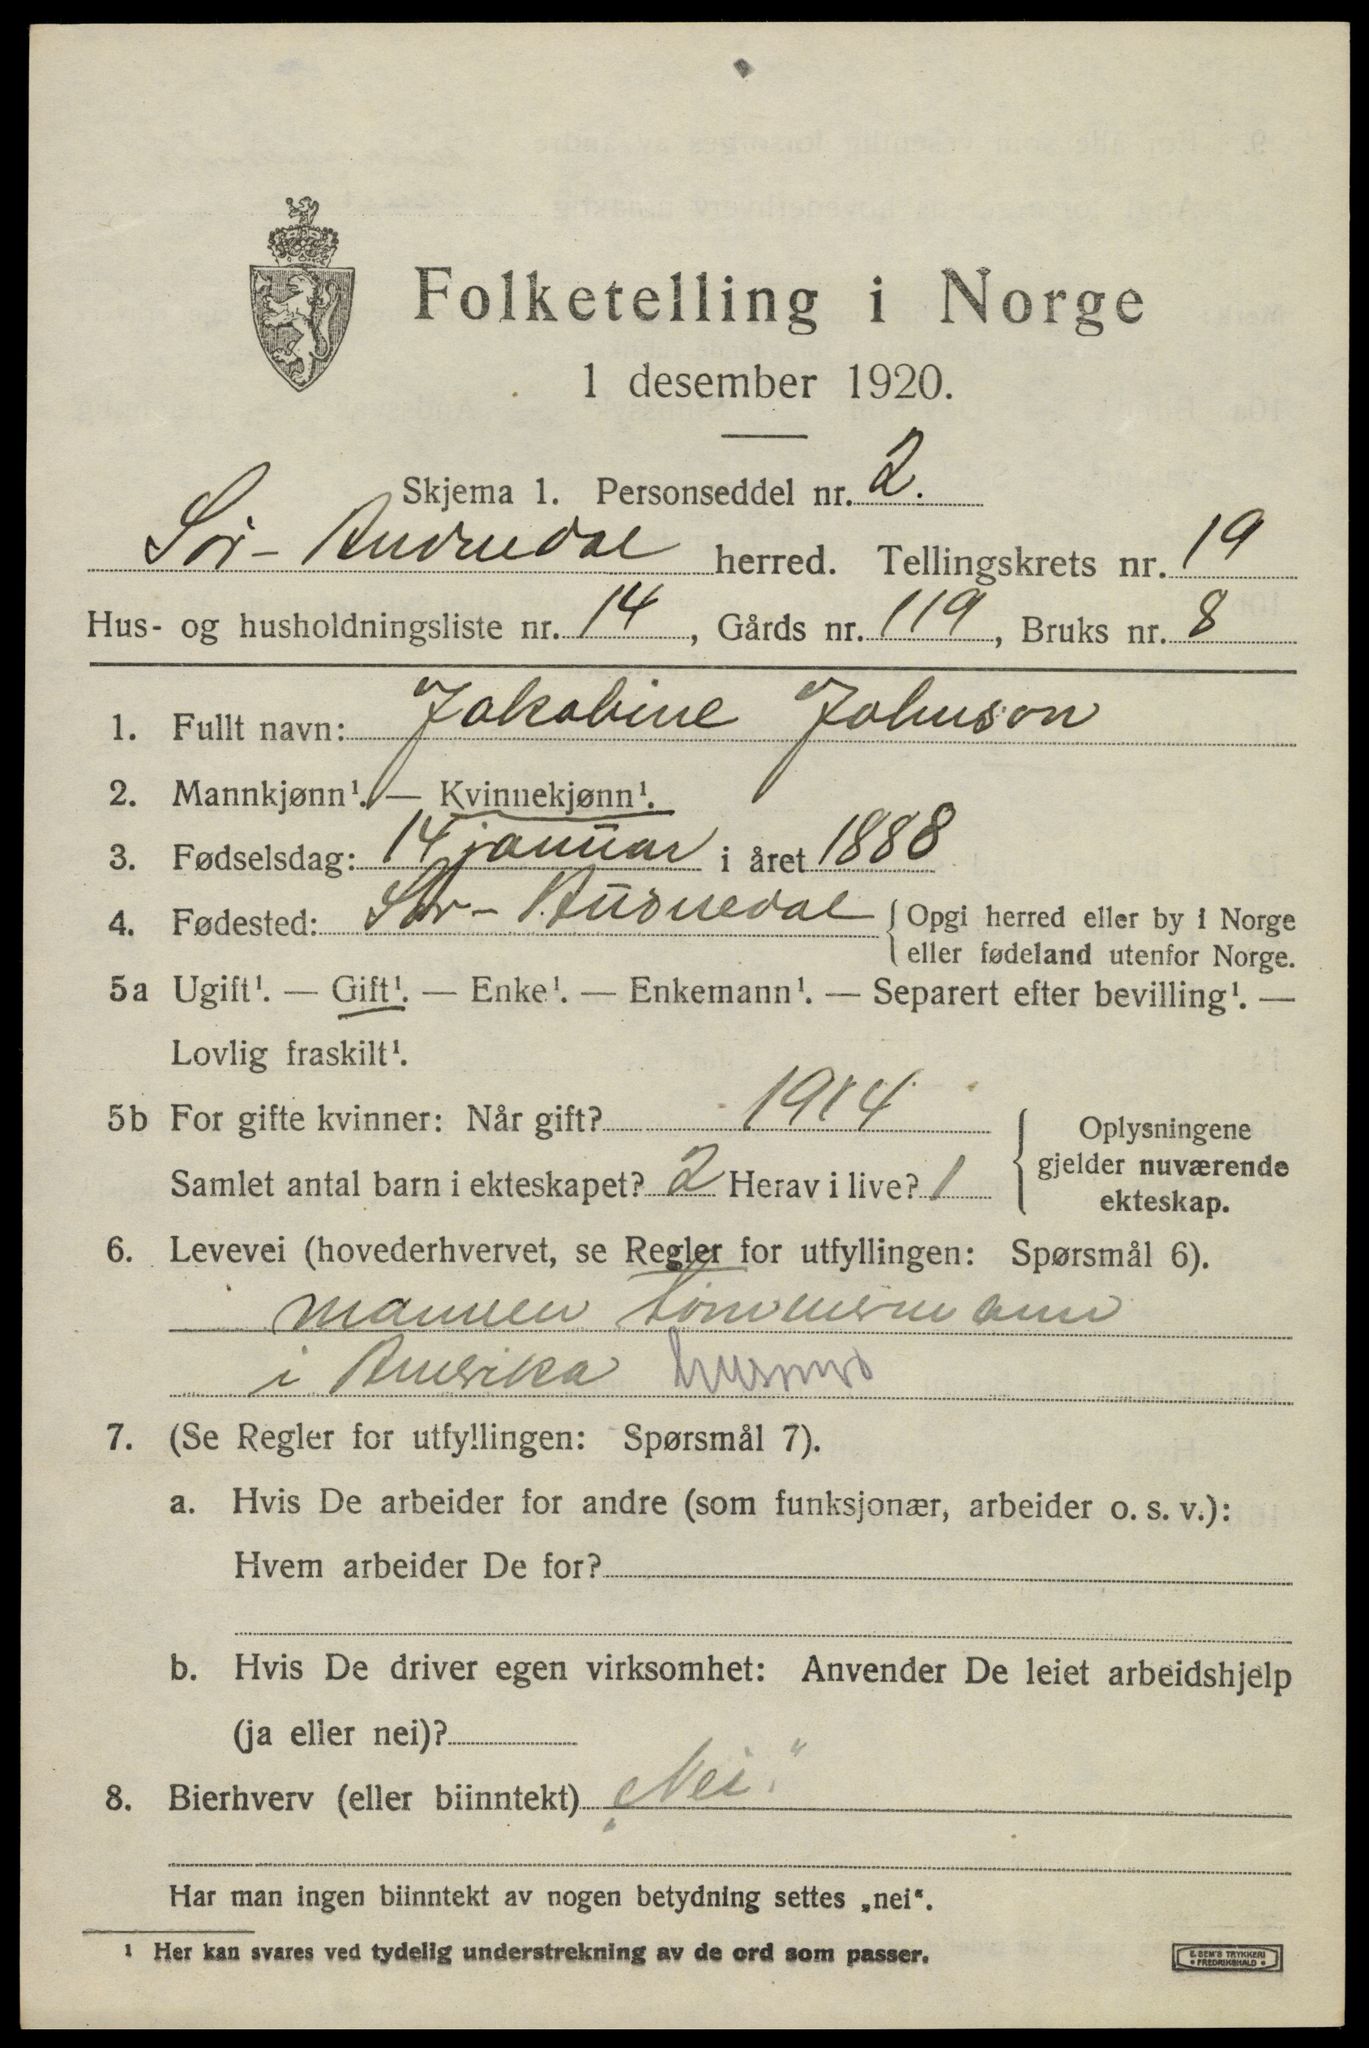 Folketelling i Norge
1 desember 1920.
Skjema 1. Personseddel nr. 2.
Sør-Audnedal herred. Tellingskrets nr. 19
Hus- og husholdningsliste nr. 14, Gårds nr. 119, Bruks nr. 8
1. Fullt navn: Jakobine Johnson
2. Mannkjønn¹. — Kvinnekjønn¹.
3. Fødselsdag: 14 januar i året 1888
4. Fødested: Sør-Audnedal { Opgi herred eller by i Norge
eller fødeland utenfor Norge.
5a Ugift¹. — Gift¹. — Enke¹. — Enkemann¹. — Separert efter bevilling¹. —
Lovlig fraskilt¹.
5b For gifte kvinner: Når gift? 1914
Samlet antal barn i ekteskapet? 2 Herav i live? 1
Oplysningene
gjelder nuværende
ekteskap.
6. Levevei (hovederhvervet, se Regler for utfyllingen: Spørsmål 6).
mannen tømmermann
i Amerika
7. (Se Regler for utfyllingen: Spørsmål 7).
a. Hvis De arbeider for andre (som funksjonær, arbeider o. s. v.):
Hvem arbeider De for?
b. Hvis De driver egen virksomhet: Anvender De leiet arbeidshjelp
(ja eller nei)?
8. Bierhverv (eller biinntekt) „Nei“
Har man ingen biinntekt av nogen betydning settes „nei“.
¹ Her kan svares ved tydelig understrekning av de ord som passer.
E. SEM'S TRYKKERI
• FREDRIKSHALD •